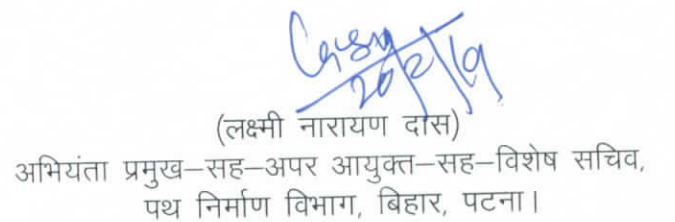 20/2/19
(लक्ष्मी नारायण दास)
अभियंता प्रमुख–सह–अपर आयुक्त–सह–विशेष सचिव,
पथ निर्माण विभाग, बिहार, पटना।